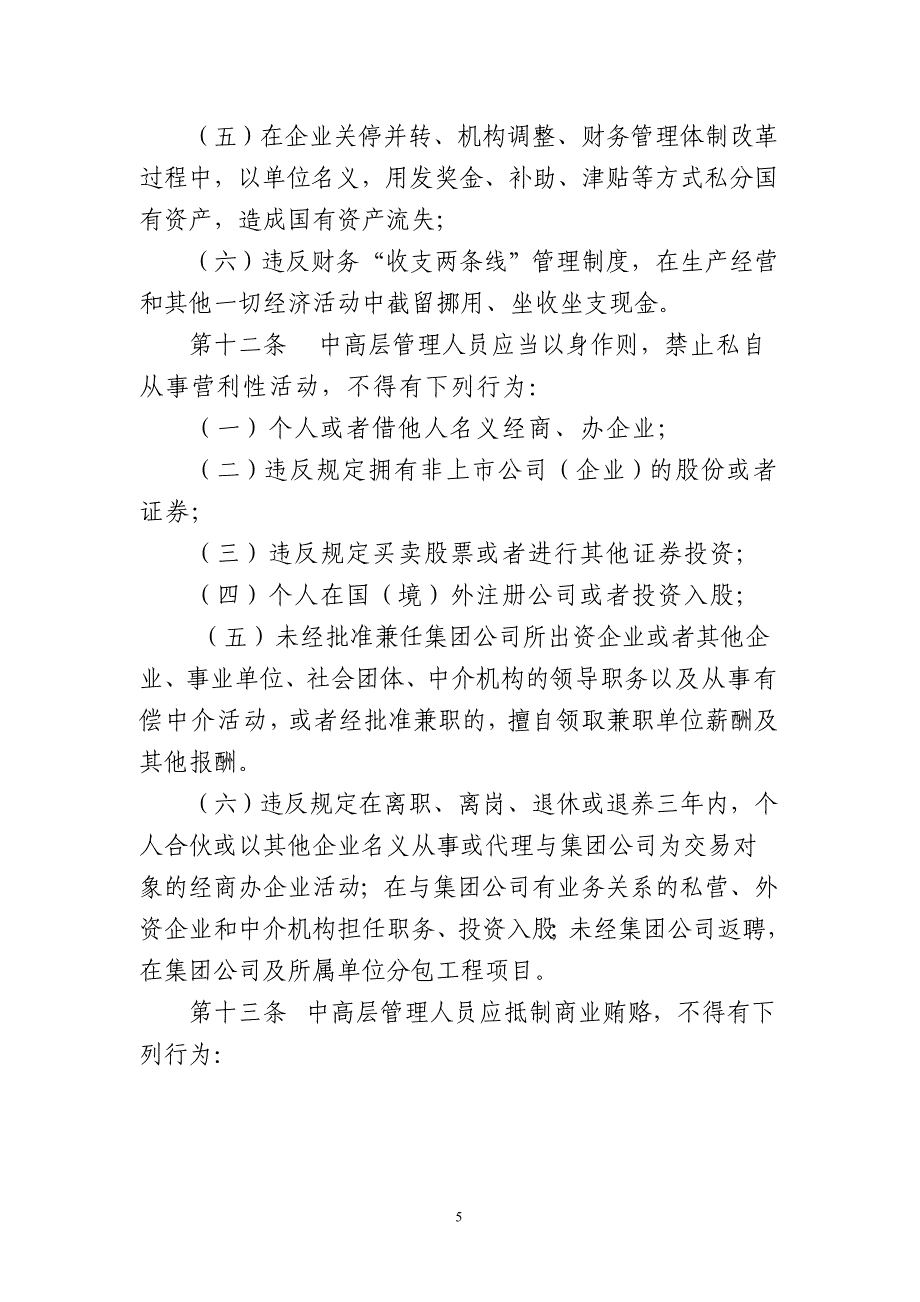 （五）在企业关停并转、机构调整、财务管理体制改革
过程中，以单位名义，用发奖金、补助、津贴等方式私分国
有资产，造成国有资产流失；
（六）违反财务“收支两条线”管理制度，在生产经营
和其他一切经济活动中截留挪用、坐收坐支现金。
第十二条　中高层管理人员应当以身作则，禁止私自
从事营利性活动，不得有下列行为：
（一）个人或者借他人名义经商、办企业；
（二）违反规定拥有非上市公司（企业）的股份或者
证券；
（三）违反规定买卖股票或者进行其他证券投资；
（四）个人在国（境）外注册公司或者投资入股；
（五）未经批准兼任集团公司所出资企业或者其他企
业、事业单位、社会团体、中介机构的领导职务以及从事有
偿中介活动，或者经批准兼职的，擅自领取兼职单位薪酬及
其他报酬。
（六）违反规定在离职、离岗、退休或退养三年内，个
人合伙或以其他企业名义从事或代理与集团公司为交易对
象的经商办企业活动；在与集团公司有业务关系的私营、外
资企业和中介机构担任职务、投资入股；未经集团公司返聘，
在集团公司及所属单位分包工程项目。
第十三条　中高层管理人员应抵制商业贿赂，不得有下
列行为：
5